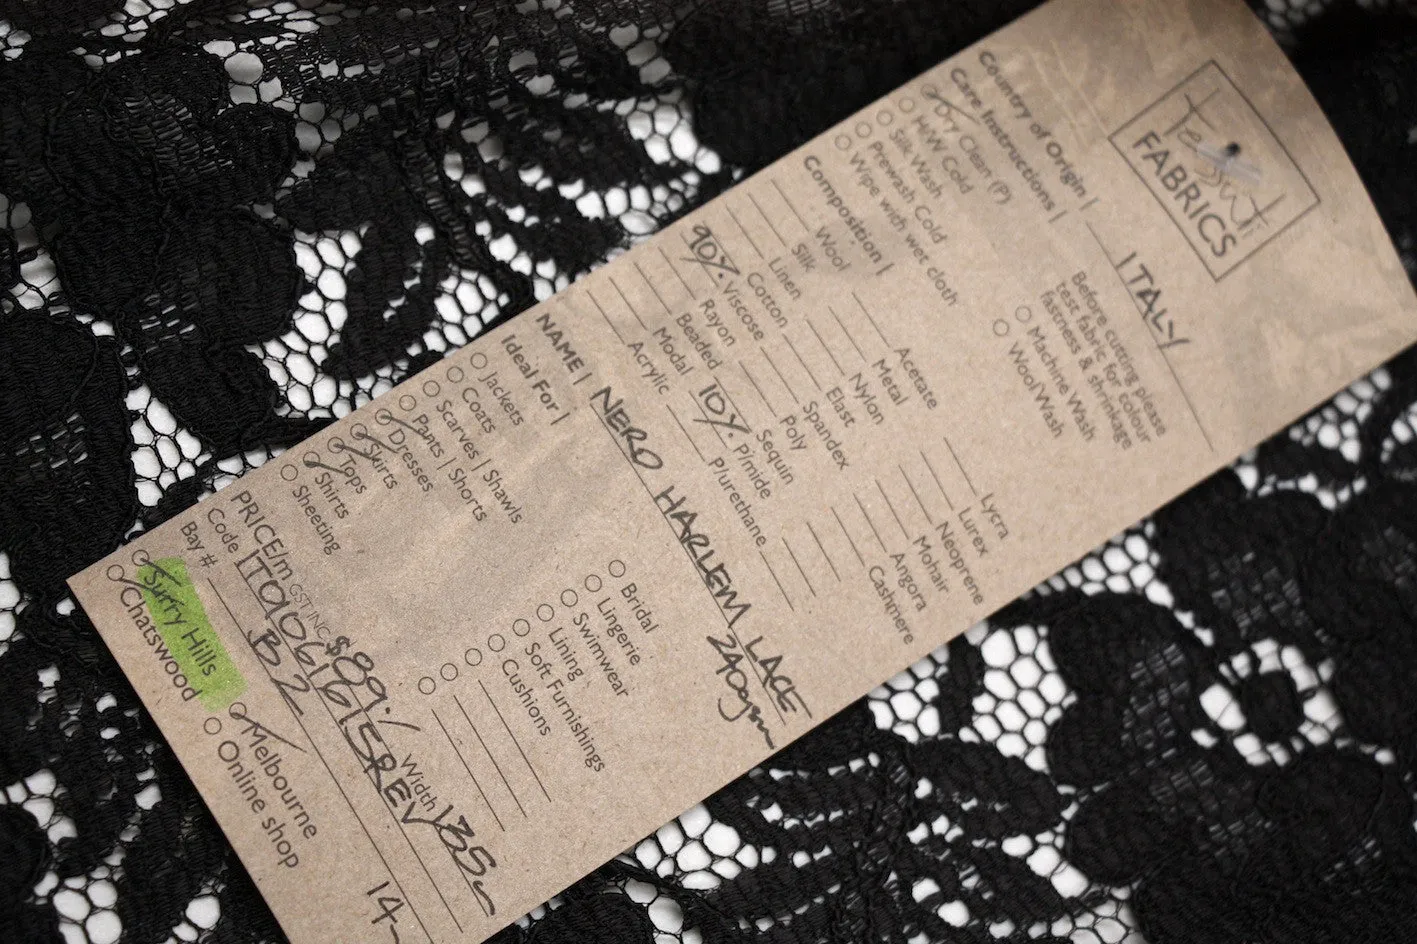 Tessuti
FABRICS
Country of Origin | ITALY
Care Instructions |
Dry Clean (P)
H/W Cold
Silk Wash
Prewash Cold
Wipe with wet cloth
Before cutting please
test fabric for colour
fastness & shrinkage
Machine Wash
Wool Wash
Composition |
Wool
Silk
Linen
Cotton
90% Viscose
Rayon
Beaded
Modal
Acrylic
Acetate
Metal
Nylon
Elast
Spandex
Poly
Sequin
10% P/mide
P/urethane
Lycra
Lurex
Neoprene
Mohair
Angora
Cashmere
NAME | NERO HARLEM LACE
240gsm
Ideal For |
Jackets
Coats
Scarves | Shawls
Pants | Shorts
Dresses
Skirts
Tops
Shirts
Sheeting
Bridal
Lingerie
Swimwear
Lining
Soft Furnishings
Cushions
PRICE/m GST INC $89./ Width 135
Code
Bay # B2
14-
Surry Hills
Chatswood
Melbourne
Online shop